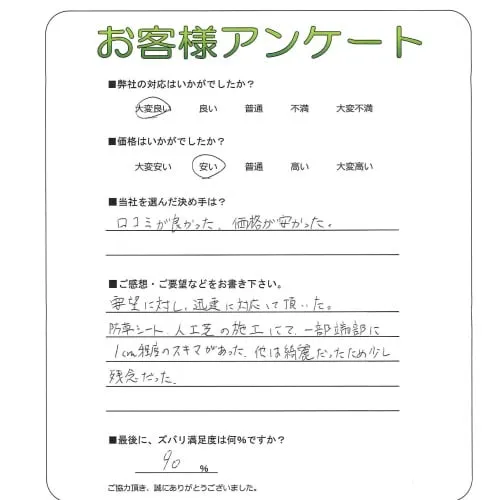 お客様アンケート
■弊社の対応はいかがでしたか？
大変良い 良い 普通 不満 大変不満
■価格はいかがでしたか？
大変安い 安い 普通 高い 大変高い
■当社を選んだ決め手は？
口コミが良かった、価格が安かった。
■ご感想・ご要望などをお書き下さい。
要望に対し、迅速に対応して頂いた。
防草シート、人工芝の施工にて、一部端部に
1cm程度のスキマがあった。他は綺麗だったため少し
残念だった。
■最後に、ズバリ満足度は何%ですか？
90 %
ご協力頂き、誠にありがとうございました。